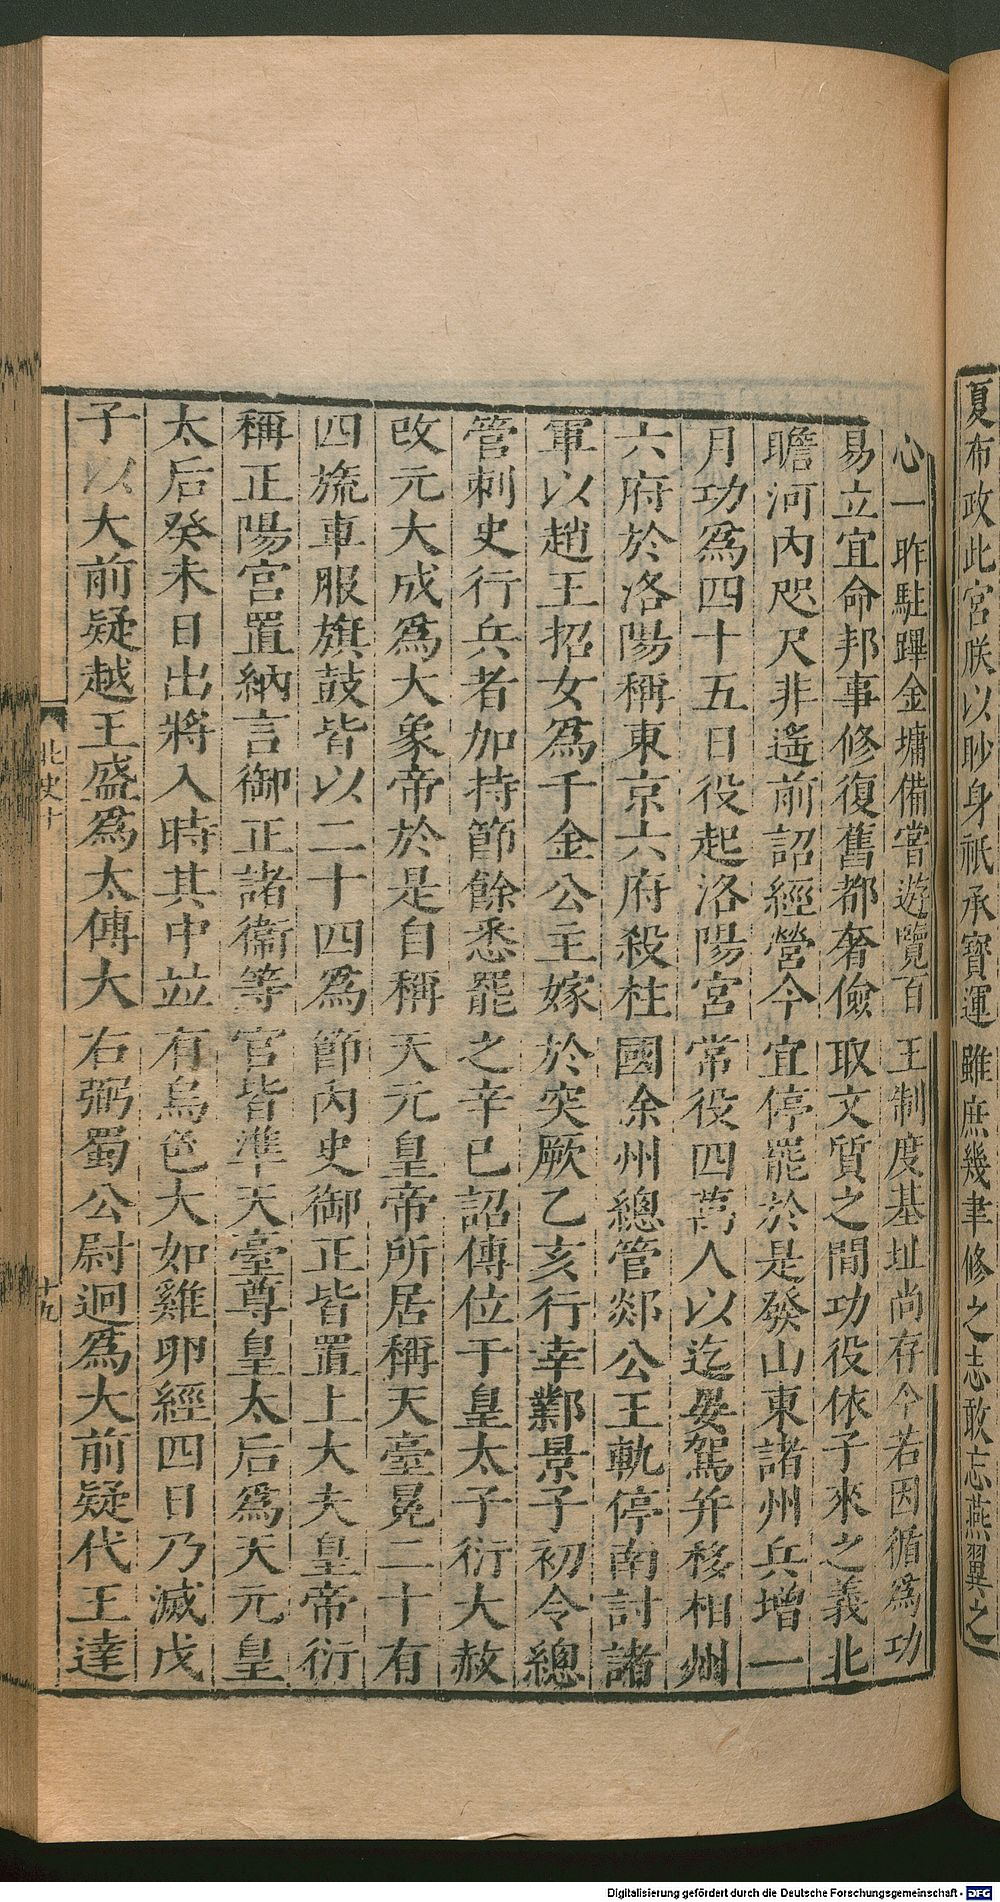 夏布政此宮朕以眇身祇承寶運雖庶幾聿修之志敢忘燕翼之
心一昨駐蹕金墉備嘗遊覽百王制度基址尚存今若因循爲功
易立宜命邦事修復舊都奢儉取文質之間功役依子來之義北
瞻河內咫尺非遙前詔經營今宜停罷於是發山東諸州兵增一
月功爲四十五日役起洛陽宮常役四萬人以迄晏駕并移相州
六府於洛陽稱東京六府殺柱國徐州總管郯公王軌停南討諸
軍以趙王招女爲千金公主嫁於突厥乙亥行幸鄴景子初令總
管刺史行兵者加持節餘悉罷之辛巳詔傳位于皇太子衍大赦
改元大成爲大象帝於是自稱天元皇帝所居稱天臺冕二十有
四旒車服旗鼓皆以二十四爲節內史御正皆置上大夫皇帝衍
稱正陽宮置納言御正諸衞等官皆準天臺尊皇太后爲天元皇
太后癸未日出將入時其中竝有烏色大如雞卵經四日乃滅戊
子以大前疑越王盛爲太傅大右弼蜀公尉迥爲大前疑代王達
北史十
十九
Digitalisierung gefördert durch die Deutsche Forschungsgemeinschaft - DFG